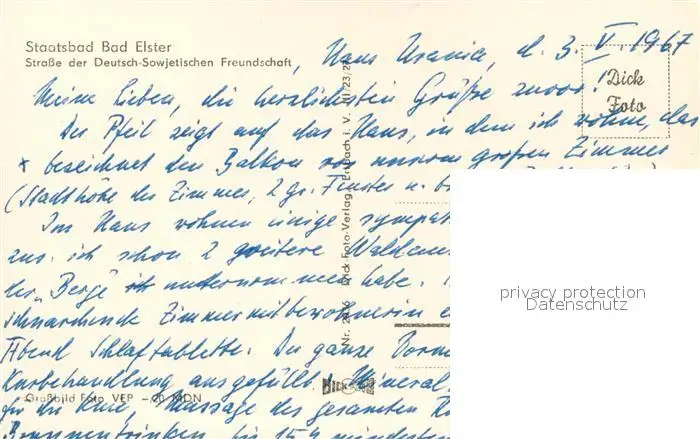 Staatsbad Bad Elster
Straße der Deutsch-Sowjetischen Freundschaft
Haus Urania, d. 3. V. 1967
Dick
Foto
Meine Lieben, die herzlichsten Grüße zuvor!
Der Pfeil zeigt auf das Haus, in dem ich wohne, das
x bezeichnet den Balkon vor unserm großen Zimmer
(Stadthöhe des Zimmer, 2 gr. Fenster u.
Im Haus wohnen einige sympat
zus. ich schon 2 weitere
der "Berge" unternommen habe.
schnarchende Zimmermitbewohnerin e
Abend Schlaftablette. Der ganze Vorm
Kurbehandlung ausgefüllt. Mineral
für die Knie, Massage des gesamten
Brunnentrinken bis 15 mindestens
Großbild Foto VEP -20 MDN
Dick Foto-Verlag, Erlbach i. V. III/23/27
privacy protection
Datenschutz